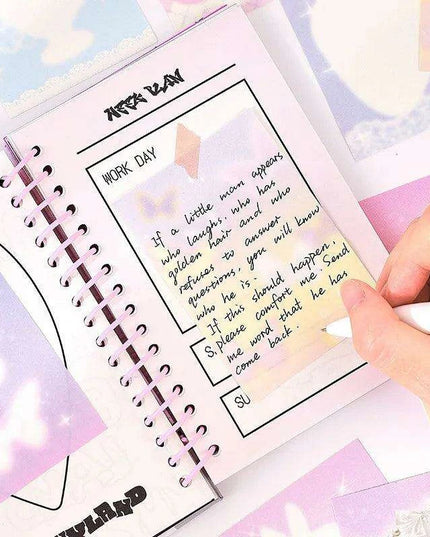 WORK DAY
If a little man appears
who laughs, who has
golden hair and who
refuses to answer
questions, you will know
who he is.
If this should happen,
please comfort me. Send
me word that he has
come back.
S
SU